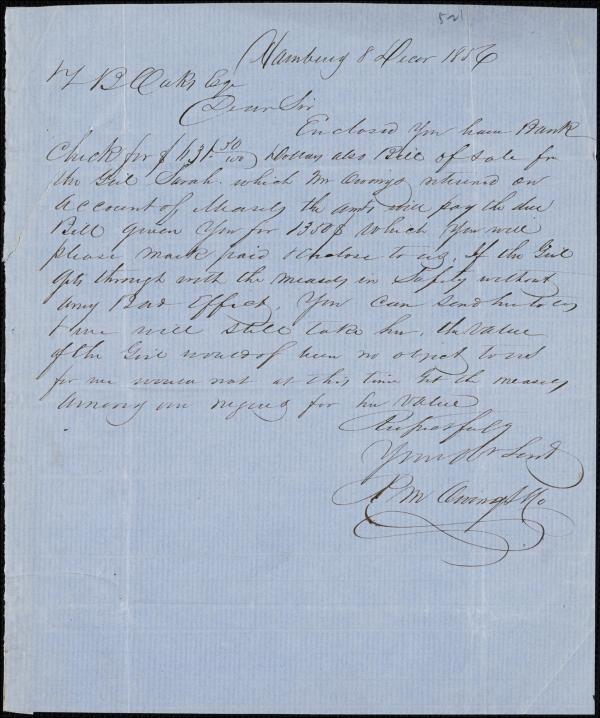 521
Hamburg 8 Decr 1856
Z B Oakes Esqr
Dear Sir
Enclosed You have Bank
Check for $ 1131 50/100 Dollars also Bill of Sale for
the Girl Sarah. which Mr Owings returned on
Account of Measels the amt will pay the due
Bill given You for 1350$ Which You will
please mark paid & Enclose to us. If the Girl
gets through with the measels in Safety without
any Bad Effect, You can Send her to us
& we will still take her, the Value
of the Girl would of been no object to us
for we would not at this time get the measels
Among our negroes for her Value
Respectfully
Your Ob Servt
R M Owings & Co